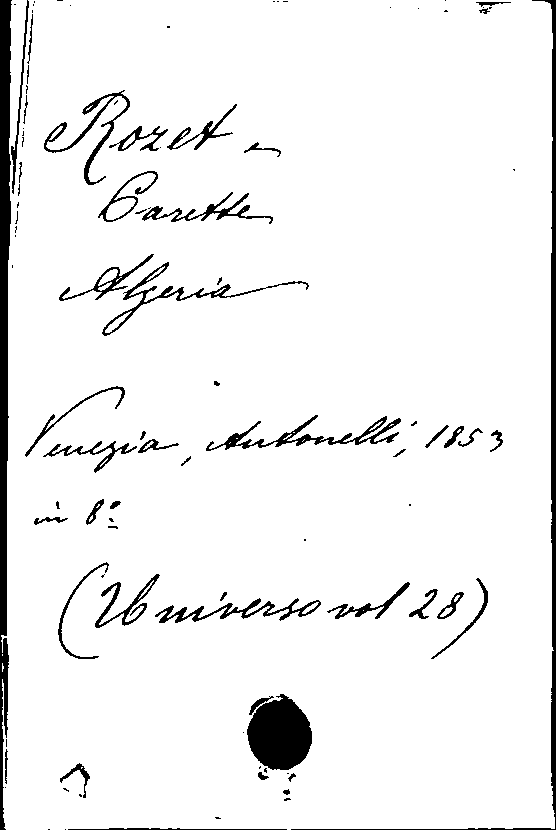 Rozet e
Carette
Algeria
Venezia, Antonelli, 1853
in 8º
(Universo vol 28)